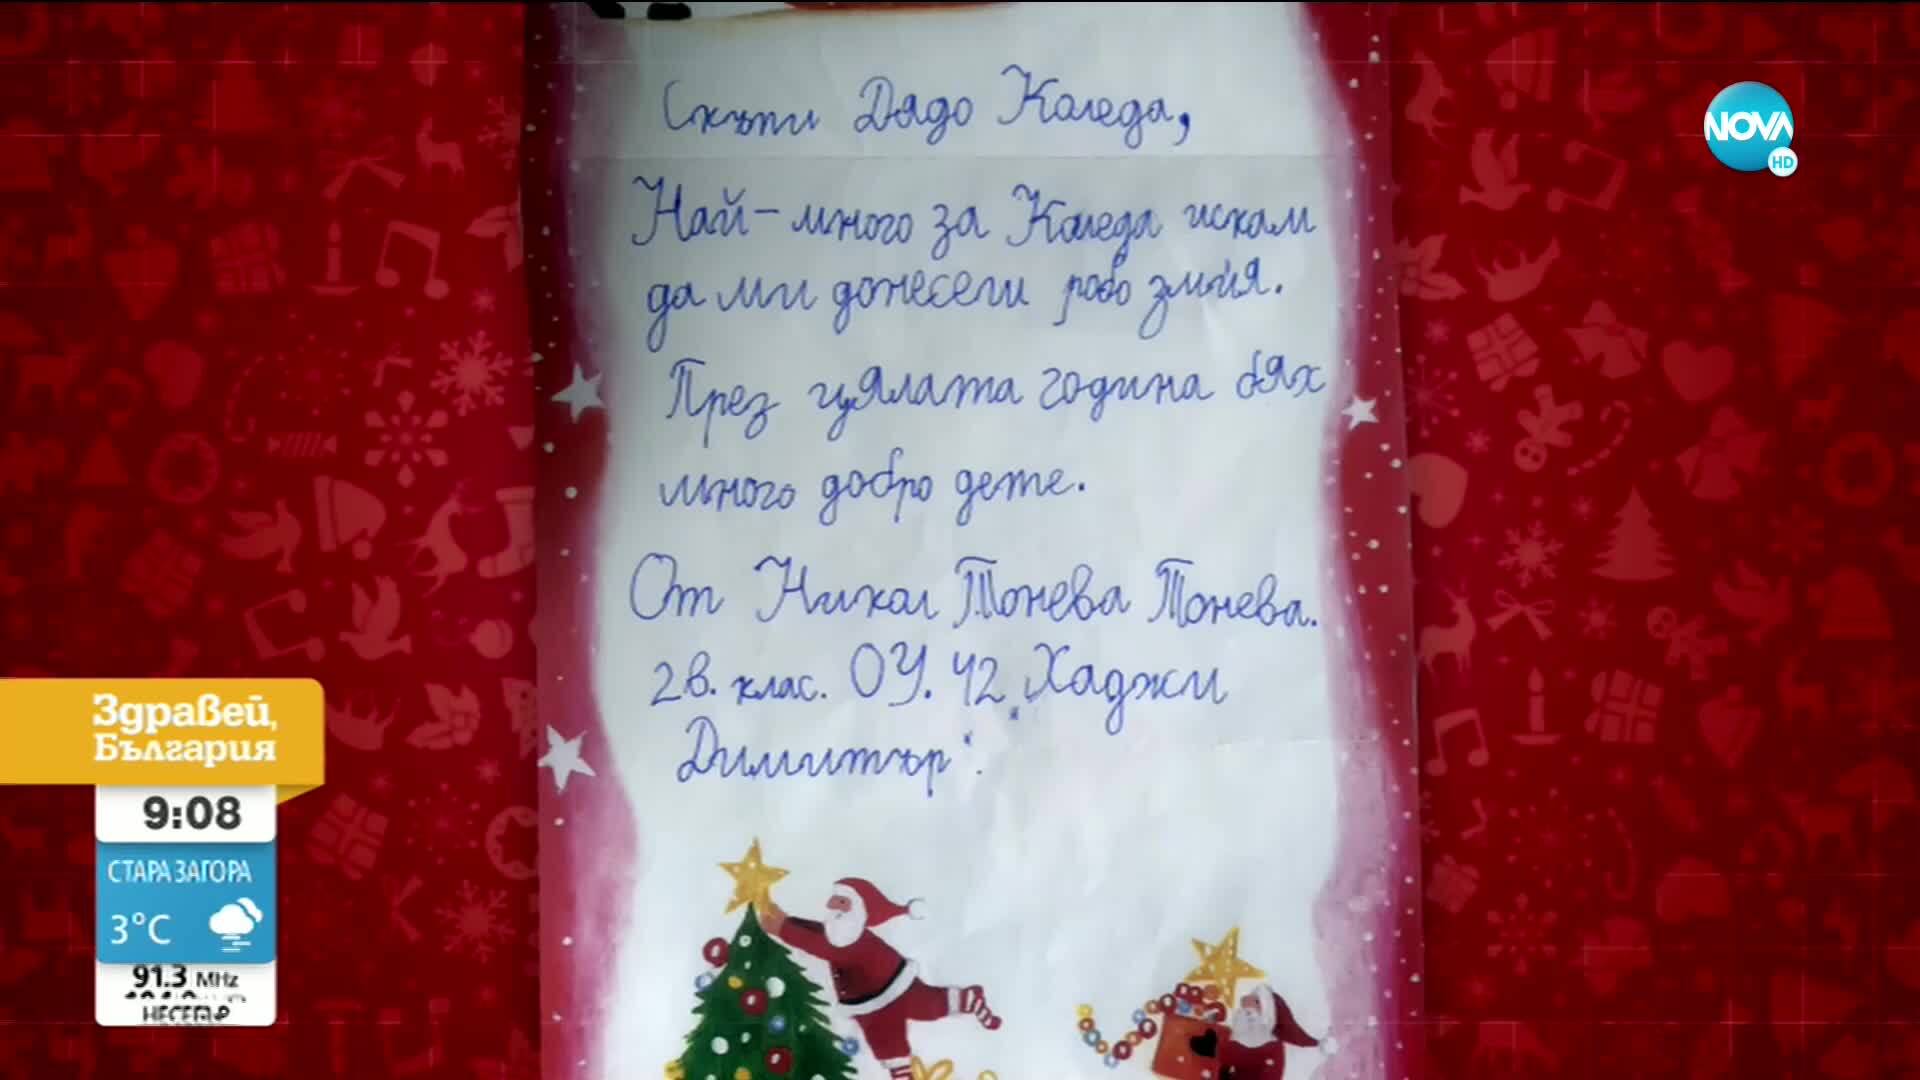 Скъпи Дядо Коледа,
Най-много за Коледа искам
да ми донесеш робо змия.
През цялата година бях
много добро дете.
От Никол Тонева Тонева.
2в. клас. ОУ. 42 „Хаджи
Димитър“.
NOVA
HD
Здравей,
България
9:08
СТАРА ЗАГОРА
3°C
91.3 MHz
НЕСЕБЪР